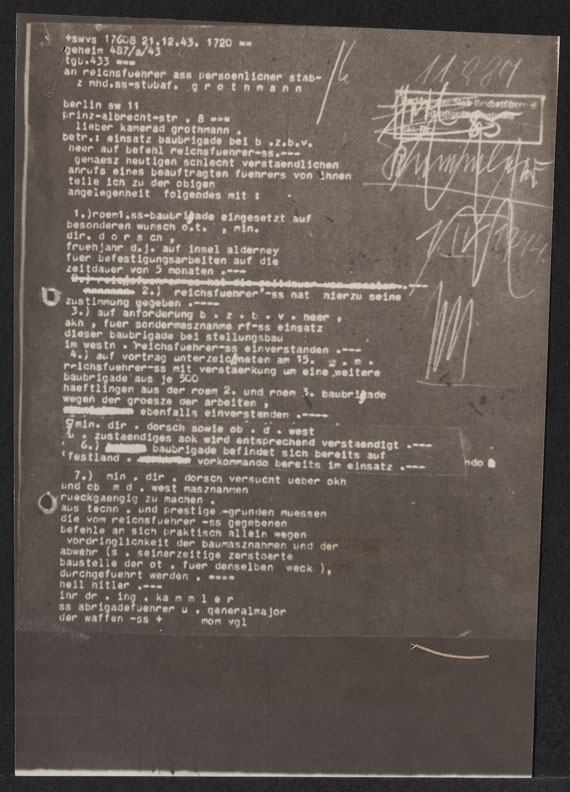 +swvs 17608 21.12.43. 1720 ==
geheim 487/a/43
tgb.433 ===
an reichsfuehrer ass persoenlicher stab-
z mhd.ss-stubaf. g r o t h m a n n
berlin sw 11
prinz-albrecht-str . 8 ===
lieber kamerad grothmann .
betr.: einsatz baubrigade bei b .z.b.v.
heer auf befehl reichsfuehrer-ss.---
gemaesz heutigen schlecht verstaendlichen
anrufs eines beauftragten fuehrers von ihnen
teile ich zu der obigen
angelegenheit folgendes mit :
1.)roem1.ss-baubrigade eingesetzt auf
besonderen wunsch o.t. , min.
dir. d o r s c h ,
fruehjahr d.j. auf insel alderney
fuer befestigungsarbeiten auf die
zeitdauer von 5 monaten .---
2.) reichsfuehrer'-ss hat hierzu seine
zustimmung gegeben .----
3.) auf anforderung b . z . b . v . heer ,
akn , fuer sondermasznahme rf-ss einsatz
dieser baubrigade bei stellungsbau
im westn . reichsfuehrer-ss einverstanden .---
4.) auf vortrag unterzeichneten am 15. . m .
rreichsfuehrer-ss mit verstaerkung um eine weitere
baubrigade aus je 500
haeftlingen aus der roem 2. und roem 3. baubrigade
wegen der groesze der arbeiten ,
ebenfalls einverstanden .----
min. dir . dorsch sowie ob . d . west
u . zustaendiges aok wird entsprechend verstaendigt .---
6.) baubrigade befindet sich bereits auf
festland . vorkommando bereits im einsatz .---- ndo
7.) min . dir . dorsch versucht ueber okh
und ob m d . west masznahmen
rueckgaengig zu machen .
aus techn . und prestige -gruenden muessen
die vom reichsfuehrer -ss gegebenen
befehle an sich praktisch allein wegen
vordringlichkeit der baumasznahmen und der
abwehr (s . seinerzeitige zerstoerte
baustelle der ot . fuer denselben weck ),
durchgefuehrt werden . ====
heil hitler .---
ihr dr . ing . k a m m l e r
ss abrigadefuehrer u . generalmajor
der waffen -ss + mom vgl